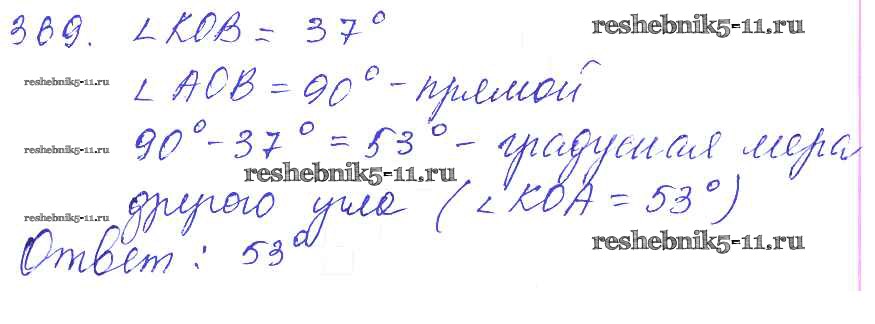 369. ∠KOB = 37°
reshebnik5-11.ru
reshebnik5-11.ru
∠AOB = 90° - прямой
90° - 37° = 53° - градусная мера
reshebnik5-11.ru
reshebnik5-11.ru
другого угла (∠KOA = 53°)
reshebnik5-11.ru
Ответ: 53°
reshebnik5-11.ru